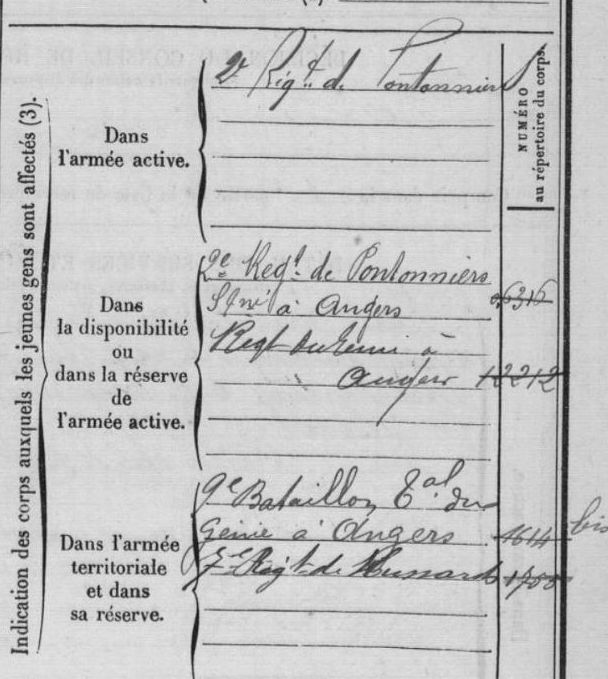 Indication des corps auxquels les jeunes gens sont affectés (3).
NUMÉRO
au répertoire du corps.
Dans
l'armée active.
2e Régt de Pontonniers
Dans
la disponibilité
ou
dans la réserve
de
l'armée active.
2e Regt de Pontonniers
à Angers
Regt du Génie à
Angers 12212
Dans l'armée
territoriale
et dans
sa réserve.
9e Bataillon Tal du
Génie à Angers 4614 bis
7e Régt de Hussards 1788